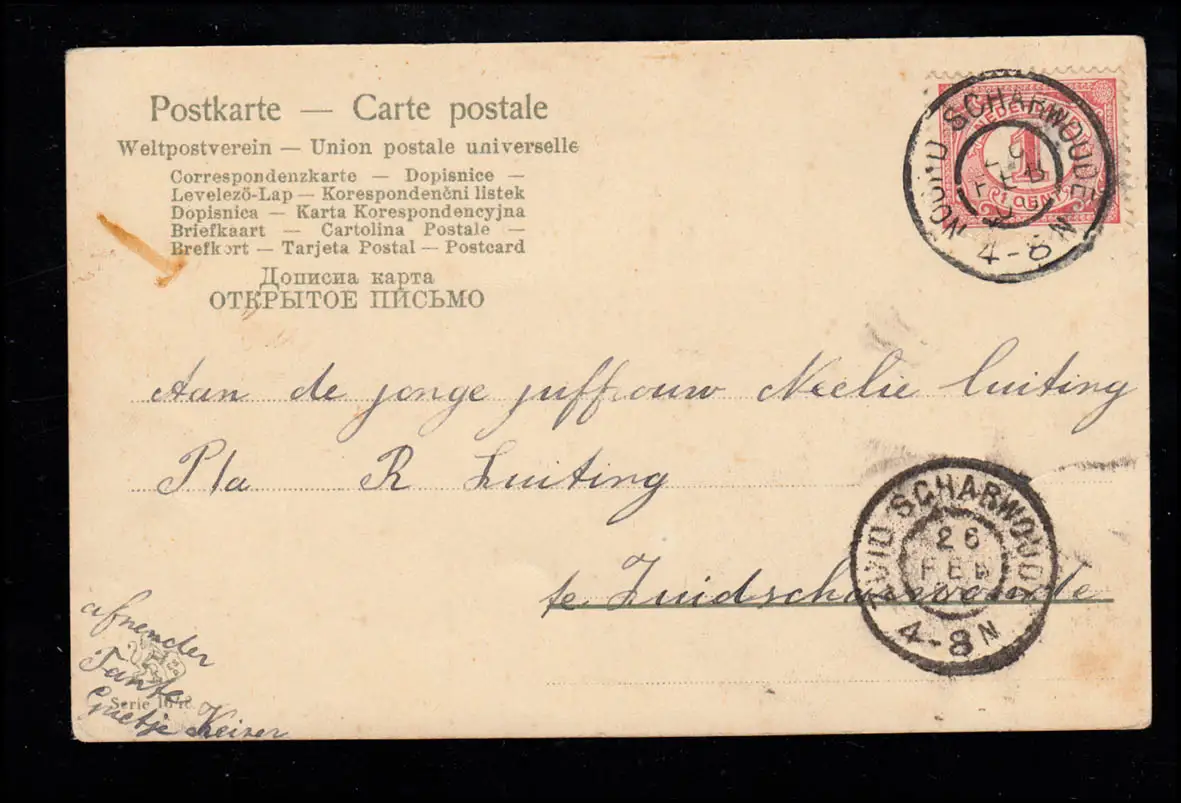 Postkarte — Carte postale
Weltpostverein — Union postale universelle
Correspondenzkarte — Dopisnice —
Levelező-Lap — Korespondenčni listek
Dopisnica — Karta Korespondencyjna
Briefkaart — Cartolina Postale —
Brefkort — Tarjeta Postal — Postcard
Дописна карта
ОТКРЫТОЕ ПИСЬМО
NOORD SCHARWOUDE
NEDERLAND
1
FEB
1 CENT
4-8N
Aan de jonge juffrouw Neelie Luiting
P/a R Luiting
ZUID SCHARWOUDE
26
FEB
4-8N
te Zuidscharwoude
afnender
Tante
Serie
Guetje Keizer